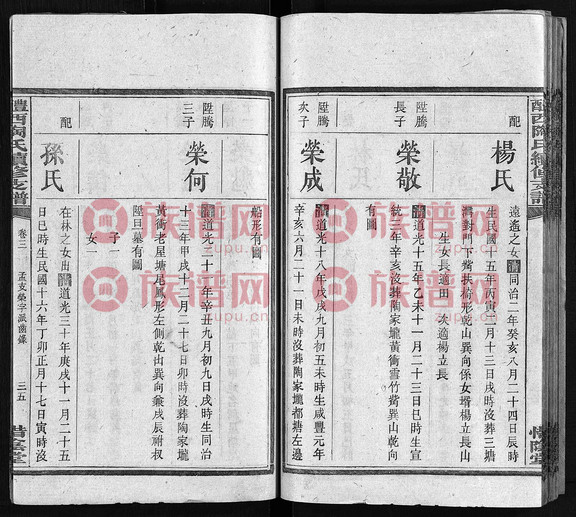 醴西陶氏續修支譜
楊氏
遠遙之女清同治二年癸亥八月二十四日辰時
生民國十五年丙寅二月十三日戌時沒葬三塘
灣對門下觜扶椅形乾山巽向係女壻楊立長山
生女長適田一次適楊立長
陞騰
長子
榮敬
清道光十五年乙未十一月二十三日巳時生宣
統三年辛亥沒葬陶家壠黃衝雪竹觜巽山乾向
有圖
陞騰
次子
榮成
清道光十八年戊戌九月初五未時生咸豐元年
辛亥六月二十一日未時沒葬陶家壠都塘左邊
船形有圖
陞騰
三子
榮何
清道光二十一年辛丑九月初九日戌時生同治
十三年甲戌十二月二十七日卯時沒葬陶家壠
黃衝老屋塘尾鳳形左側乾山巽向兼戌辰祔叔
陞旦墓有圖
子一
女一
配
孫氏
在林之女清道光三十年庚戌十一月二十五
日巳時生民國十六年丁卯正月十七日寅時沒
醴西陶氏續修支譜
卷三
孟支榮字派齒錄
三五
惜陰堂
族谱网
zupu.cn